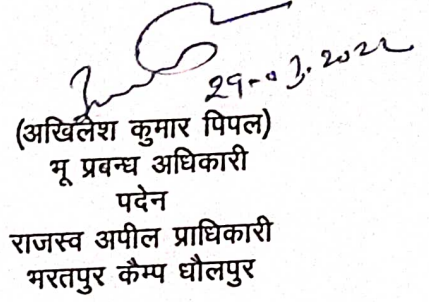 29-03.2022
(अखिलेश कुमार पिपल)
भू प्रबन्ध अधिकारी
पदेन
राजस्व अपील प्राधिकारी
भरतपुर कैम्प धौलपुर